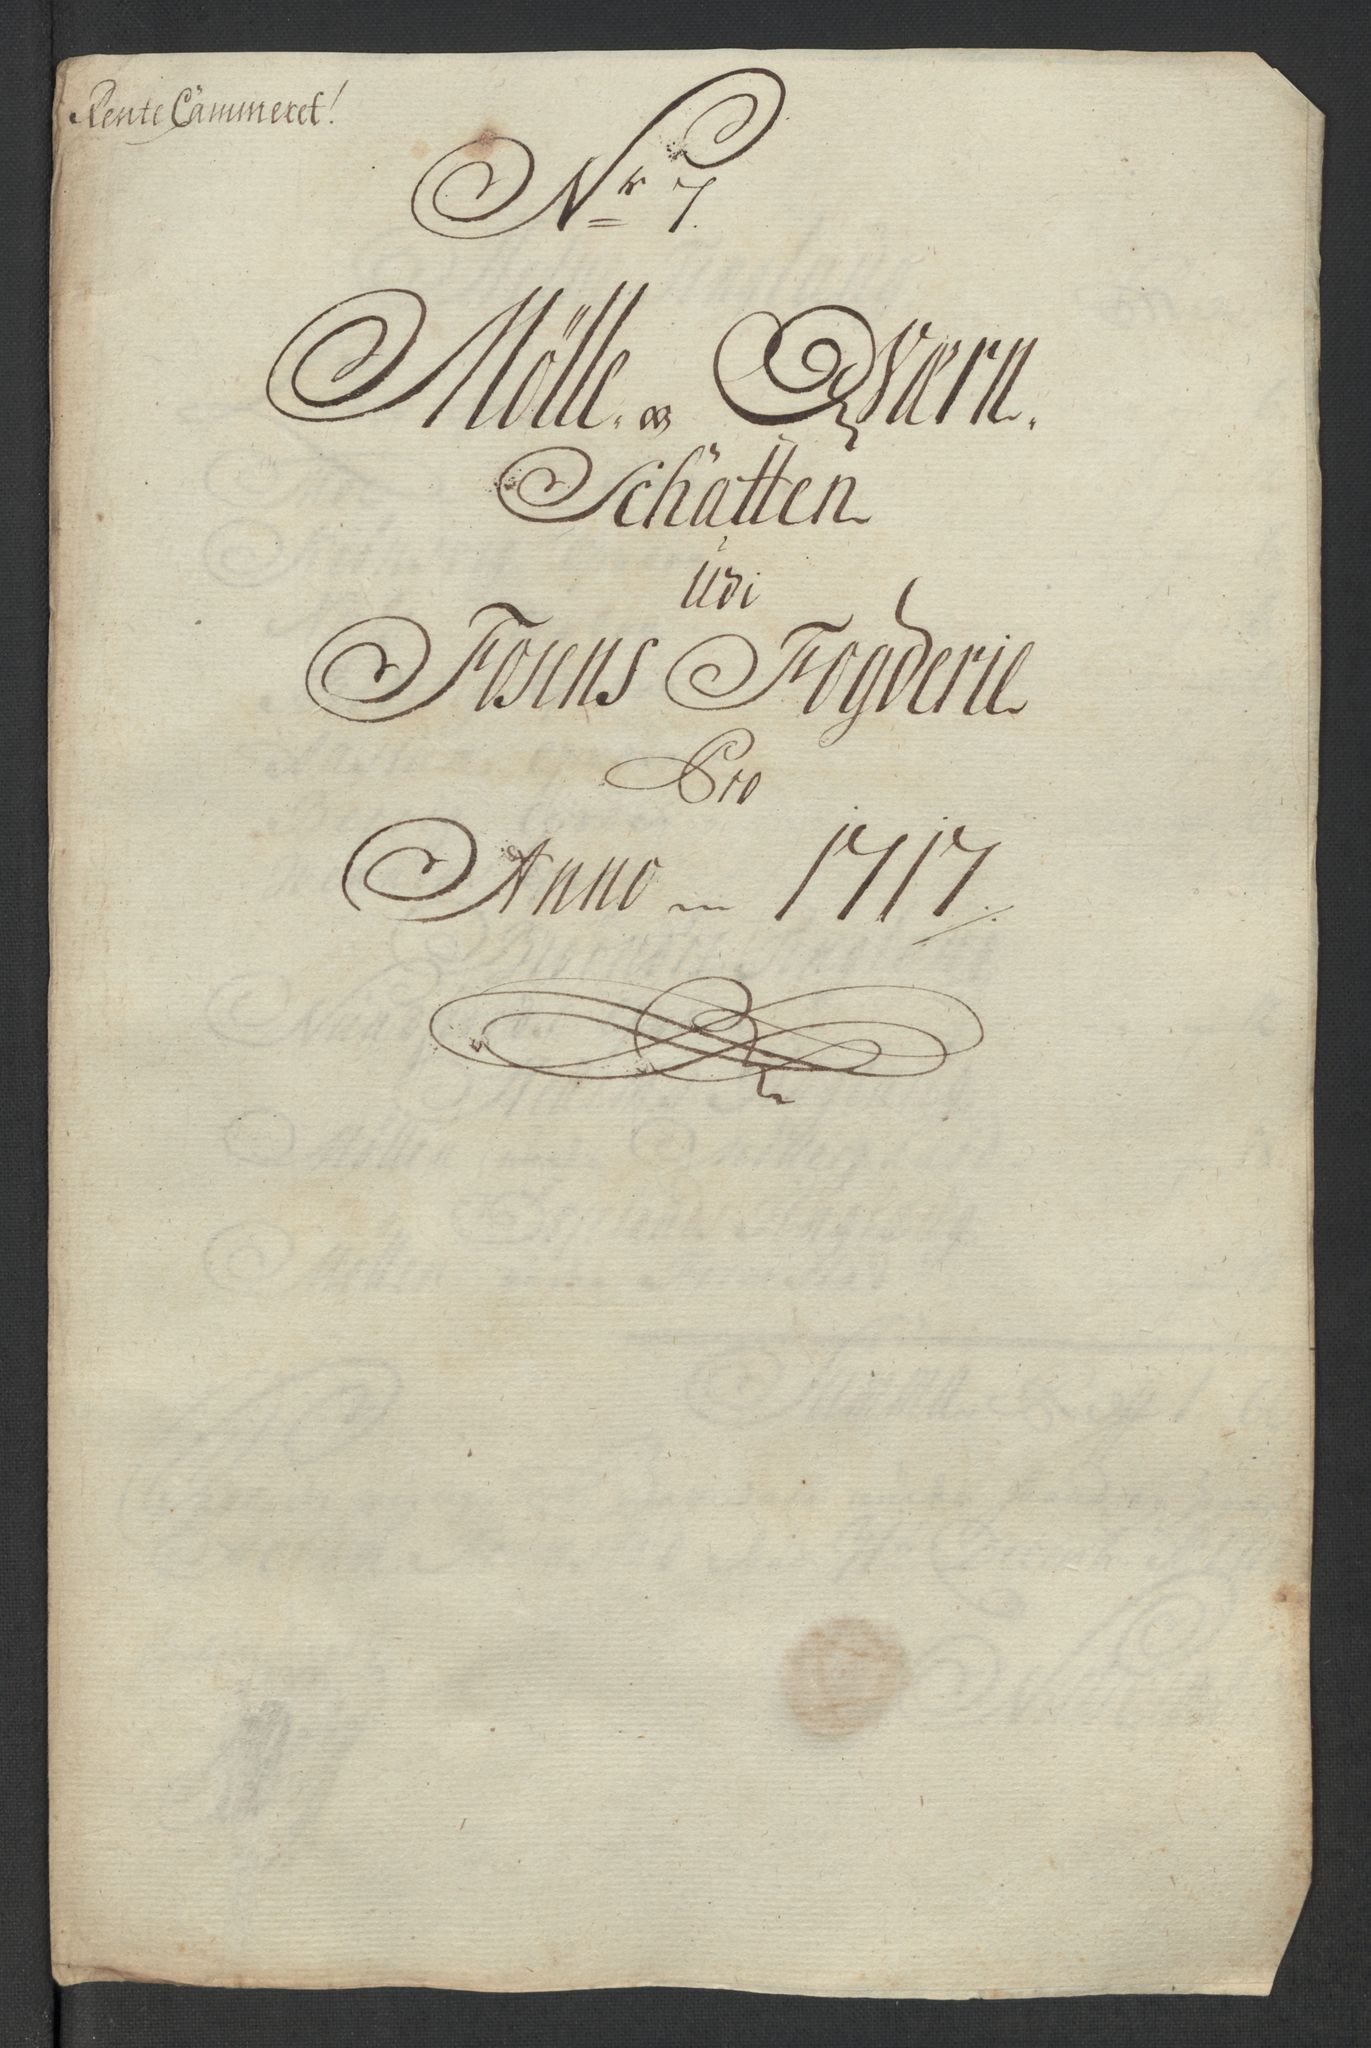 Rente Cammeret!
Nr 7.
Mölle og Qværn
Schatten
Udi
Fosens Fogderie
Pro
Anno 1717